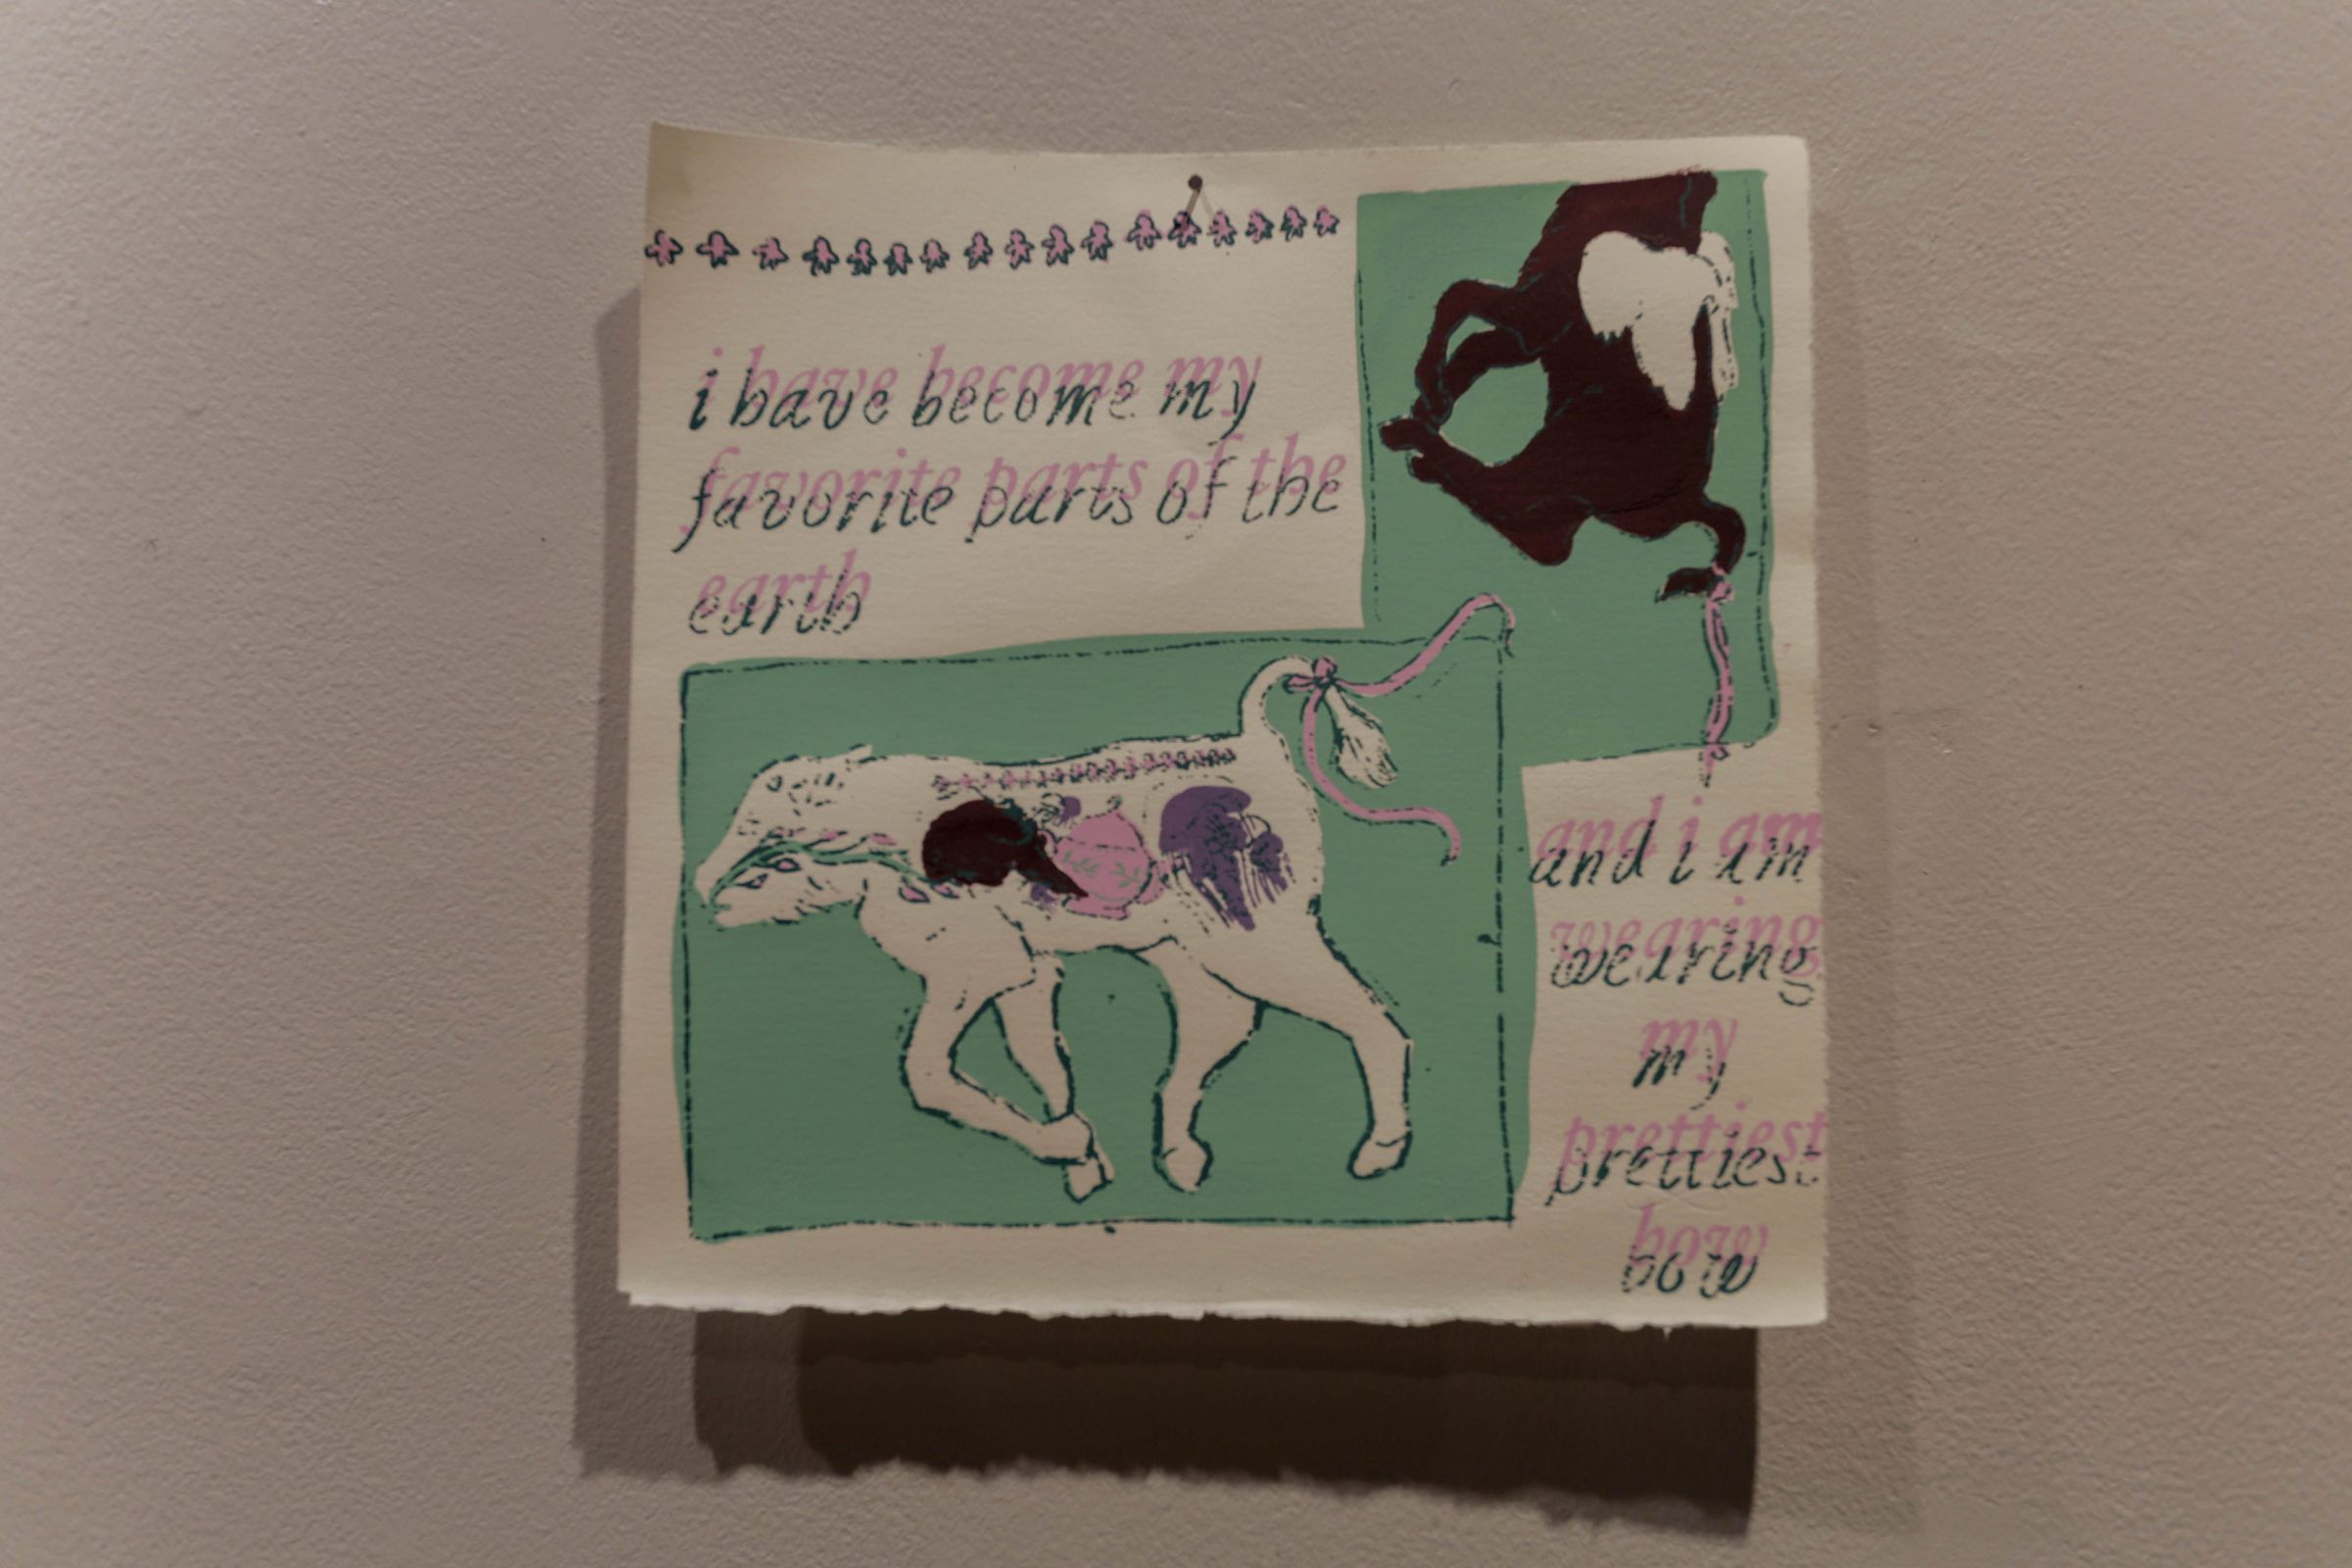 i have become my
favorite parts of the
earth
and i am
wearing
my
prettiest
bow